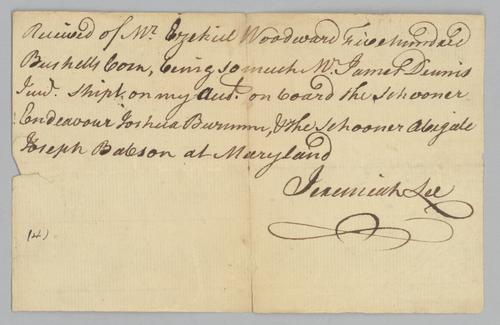 Received of Mr. Ezekiel Woodward Five hundred
Bushells Corn, being so much Mr. James Dennis
Junr. shipt, on my Acct. on board the Schooner
Endeavour Joshua Burnum, & the Schooner Abigale
Joseph Babson at Maryland
Jeremiah Lee
(4)